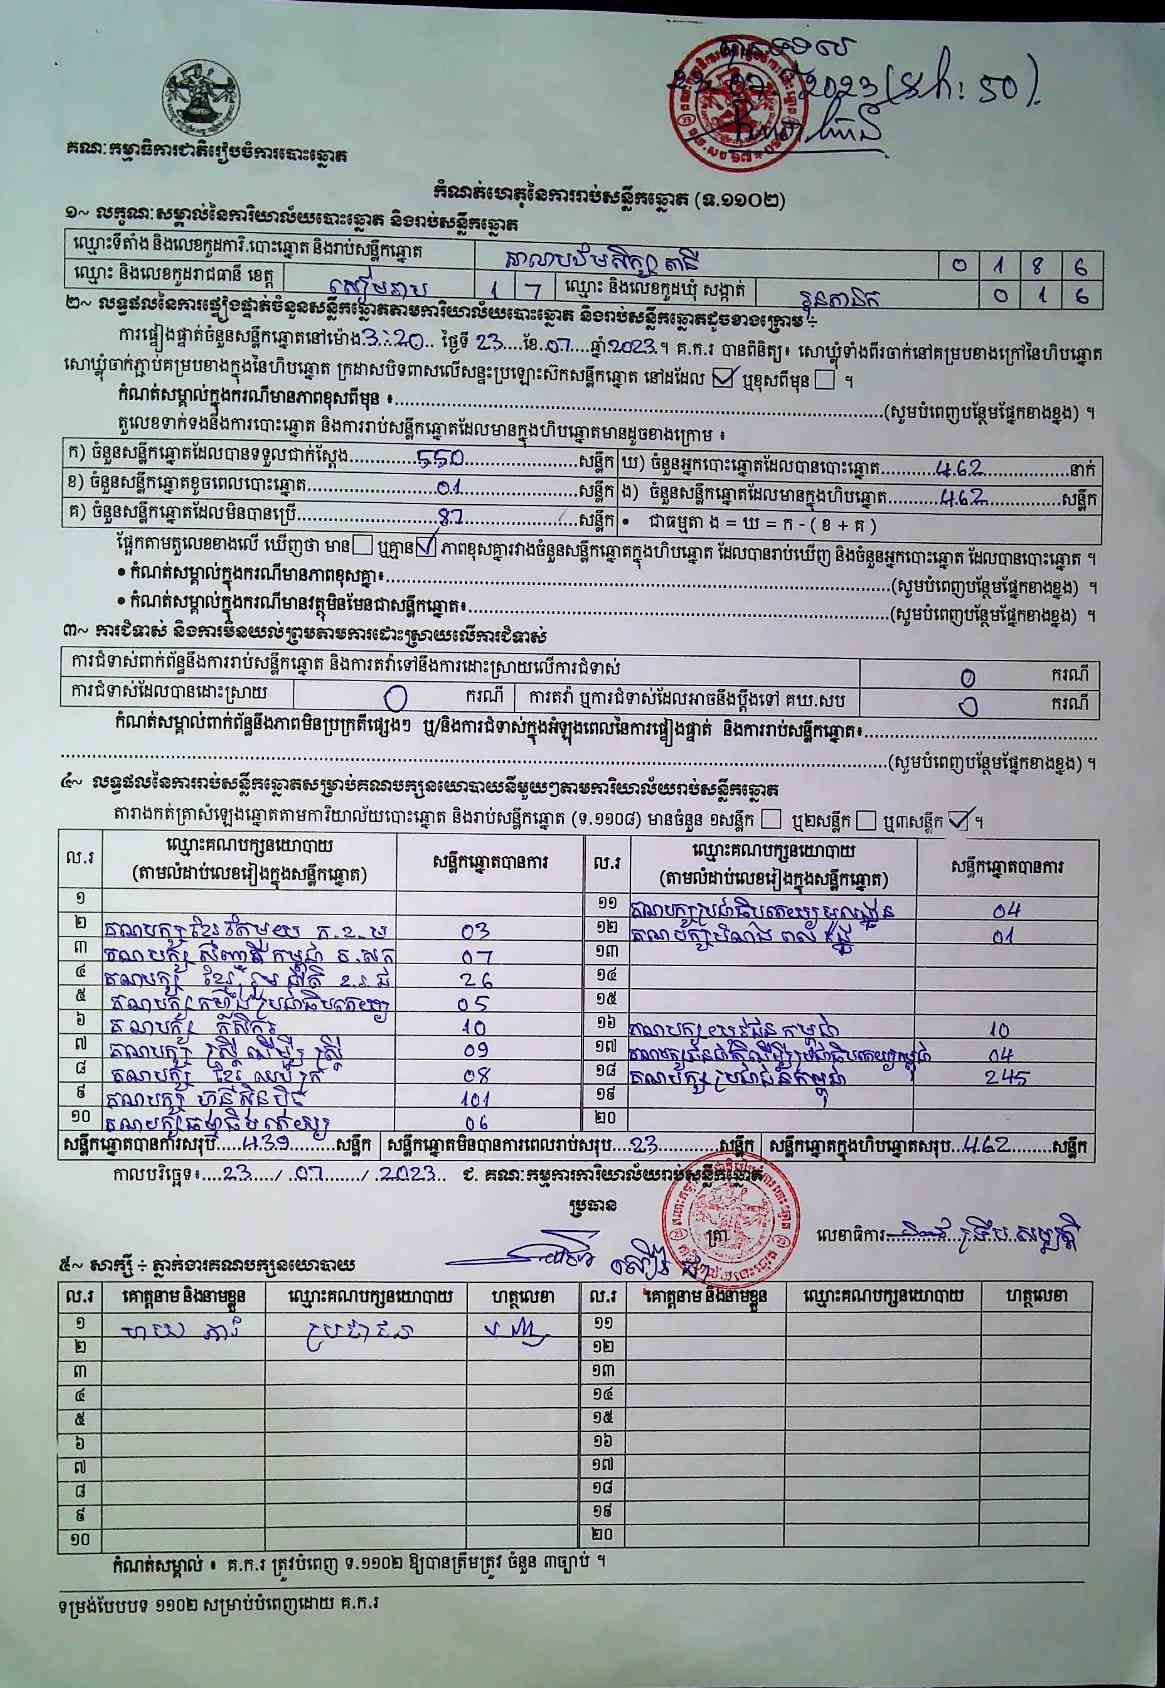 បានទទួល
23 07 2023 (ម៉ោ: 50).
គណៈកម្មាធិការជាតិរៀបចំការបោះឆ្នោត
កំណត់ហេតុនៃការរាប់សន្លឹកឆ្នោត (ទ.១១០២)
១~ លក្ខណៈសម្គាល់នៃការិយាល័យបោះឆ្នោត និងរាប់សន្លឹកឆ្នោត
ឈ្មោះទីតាំង និងលេខកូដការិ.បោះឆ្នោត និងរាប់សន្លឹកឆ្នោត 0 1 8 6
ឈ្មោះ និងលេខកូដរាជធានី ខេត្ត សៀមរាប 1 7 ឈ្មោះ និងលេខកូដឃុំ សង្កាត់ 0 1 6
២~ លទ្ធផលនៃការផ្ទៀងផ្ទាត់ចំនួនសន្លឹកឆ្នោតតាមការិយាល័យបោះឆ្នោត និងរាប់សន្លឹកឆ្នោតដូចខាងក្រោម ÷
ការផ្ទៀងផ្ទាត់ចំនួនសន្លឹកឆ្នោតនៅម៉ោង 3:20 ថ្ងៃទី 23 ខែ 07 ឆ្នាំ 2023 ។ គ.ក.រ បានពិនិត្យ៖ សោឃ្លុំទាំងពីរចាក់នៅគម្របខាងក្រៅនៃហិបឆ្នោត
សោឃ្លុំចាក់ភ្ជាប់គម្របខាងក្នុងនៃហិបឆ្នោត ក្រដាសបិទពាសលើសន្ទះប្រឡោះស៊កសន្លឹកឆ្នោត នៅដដែល ☑ ឬខុសពីមុន ☐ ។
កំណត់សម្គាល់ក្នុងករណីមានភាពខុសពីមុន ៖ (សូមបំពេញបន្ថែមផ្នែកខាងខ្នង) ។
តួលេខទាក់ទងនឹងការបោះឆ្នោត និងការរាប់សន្លឹកឆ្នោតដែលមានក្នុងហិបឆ្នោតមានដូចខាងក្រោម ៖
ក) ចំនួនសន្លឹកឆ្នោតដែលបានទទួលជាក់ស្តែង 550 សន្លឹក ឃ) ចំនួនអ្នកបោះឆ្នោតដែលបានបោះឆ្នោត 462 នាក់
ខ) ចំនួនសន្លឹកឆ្នោតខូចពេលបោះឆ្នោត 01 សន្លឹក ង) ចំនួនសន្លឹកឆ្នោតដែលមានក្នុងហិបឆ្នោត 462 សន្លឹក
គ) ចំនួនសន្លឹកឆ្នោតដែលមិនបានប្រើ 87 សន្លឹក • ជាធម្មតា ង = ឃ = ក - ( ខ + គ )
ផ្អែកតាមតួលេខខាងលើ ឃើញថា មាន ☐ ឬគ្មាន ☑ ភាពខុសគ្នារវាងចំនួនសន្លឹកឆ្នោតក្នុងហិបឆ្នោត ដែលបានរាប់ឃើញ និងចំនួនអ្នកបោះឆ្នោត ដែលបានបោះឆ្នោត ។
• កំណត់សម្គាល់ក្នុងករណីមានភាពខុសគ្នា៖ (សូមបំពេញបន្ថែមផ្នែកខាងខ្នង) ។
• កំណត់សម្គាល់ក្នុងករណីមានវត្ថុមិនមែនជាសន្លឹកឆ្នោត៖ (សូមបំពេញបន្ថែមផ្នែកខាងខ្នង) ។
៣~ ការជំទាស់ និងការមិនយល់ព្រមតាមការដោះស្រាយលើការជំទាស់
ការជំទាស់ពាក់ព័ន្ធនឹងការរាប់សន្លឹកឆ្នោត និងការតវ៉ាទៅនឹងការដោះស្រាយលើការជំទាស់ 0 ករណី
ការជំទាស់ដែលបានដោះស្រាយ 0 ករណី ការតវ៉ា ឬការជំទាស់ដែលអាចនឹងប្តឹងទៅ គឃ.សប 0 ករណី
កំណត់សម្គាល់ពាក់ព័ន្ធនឹងភាពមិនប្រក្រតីផ្សេងៗ ឬ/និងការជំទាស់ក្នុងអំឡុងពេលនៃការផ្ទៀងផ្ទាត់ និងការរាប់សន្លឹកឆ្នោត៖
(សូមបំពេញបន្ថែមផ្នែកខាងខ្នង) ។
៤~ លទ្ធផលនៃការរាប់សន្លឹកឆ្នោតសម្រាប់គណបក្សនយោបាយនីមួយៗតាមការិយាល័យរាប់សន្លឹកឆ្នោត
តារាងកត់ត្រាសំឡេងឆ្នោតតាមការិយាល័យបោះឆ្នោត និងរាប់សន្លឹកឆ្នោត (ទ.១១០៨) មានចំនួន ១សន្លឹក ☐ ឬ២សន្លឹក ☐ ឬ៣សន្លឹក ☑ ។
ល.រ ឈ្មោះគណបក្សនយោបាយ សន្លឹកឆ្នោតបានការ ល.រ ឈ្មោះគណបក្សនយោបាយ សន្លឹកឆ្នោតបានការ
(តាមលំដាប់លេខរៀងក្នុងសន្លឹកឆ្នោត) (តាមលំដាប់លេខរៀងក្នុងសន្លឹកឆ្នោត)
១ ១១ គណបក្សប្រជាធិបតេយ្យមូលដ្ឋាន 04
២ គណបក្សខ្មែរតែមួយ ក.ខ.ម 03 ១២ គណបក្ស 01
៣ គណបក្ស កម្ពុជា 07 ១៣
៤ គណបក្ស ខ្មែររួបរួមជាតិ ខ.រ.ជ 26 ១៤
៥ គណបក្សកម្លាំងប្រជាធិបតេយ្យ 05 ១៥
៦ គណបក្ស កសិករ 10 ១៦ គណបក្សយុវជនកម្ពុជា 10
៧ គណបក្ស ស្ត្រី ដើម្បី ស្ត្រី 09 ១៧ គណបក្សជនជាតិដើមប្រជាធិបតេយ្យកម្ពុជា 04
៨ គណបក្ស ខ្មែរ ឈប់ក្រ 08 ១៨ គណបក្សប្រជាជនកម្ពុជា 245
៩ គណបក្ស ហ៊្វុនស៊ិនប៉ិច 101 ១៩
១០ គណបក្សធម្មាធិបតេយ្យ 06 ២០
សន្លឹកឆ្នោតបានការសរុប 439 សន្លឹក សន្លឹកឆ្នោតមិនបានការពេលរាប់សរុប 23 សន្លឹក សន្លឹកឆ្នោតក្នុងហិបឆ្នោតសរុប 462 សន្លឹក
កាលបរិច្ឆេទ៖ 23 / 07 / 2023 ជ. គណៈកម្មការការិយាល័យរាប់សន្លឹកឆ្នោត
ប្រធាន
ត្រា លេខាធិការ
៥~ សាក្សី ÷ ភ្នាក់ងារគណបក្សនយោបាយ
ល.រ គោត្តនាម និងនាមខ្លួន ឈ្មោះគណបក្សនយោបាយ ហត្ថលេខា ល.រ គោត្តនាម និងនាមខ្លួន ឈ្មោះគណបក្សនយោបាយ ហត្ថលេខា
១ ប្រជាជន ១១
២ ១២
៣ ១៣
៤ ១៤
៥ ១៥
៦ ១៦
៧ ១៧
៨ ១៨
៩ ១៩
១០ ២០
កំណត់សម្គាល់ ៖ គ.ក.រ ត្រូវបំពេញ ទ.១១០២ ឱ្យបានត្រឹមត្រូវ ចំនួន ៣ច្បាប់ ។
ទម្រង់បែបបទ ១១០២ សម្រាប់បំពេញដោយ គ.ក.រ